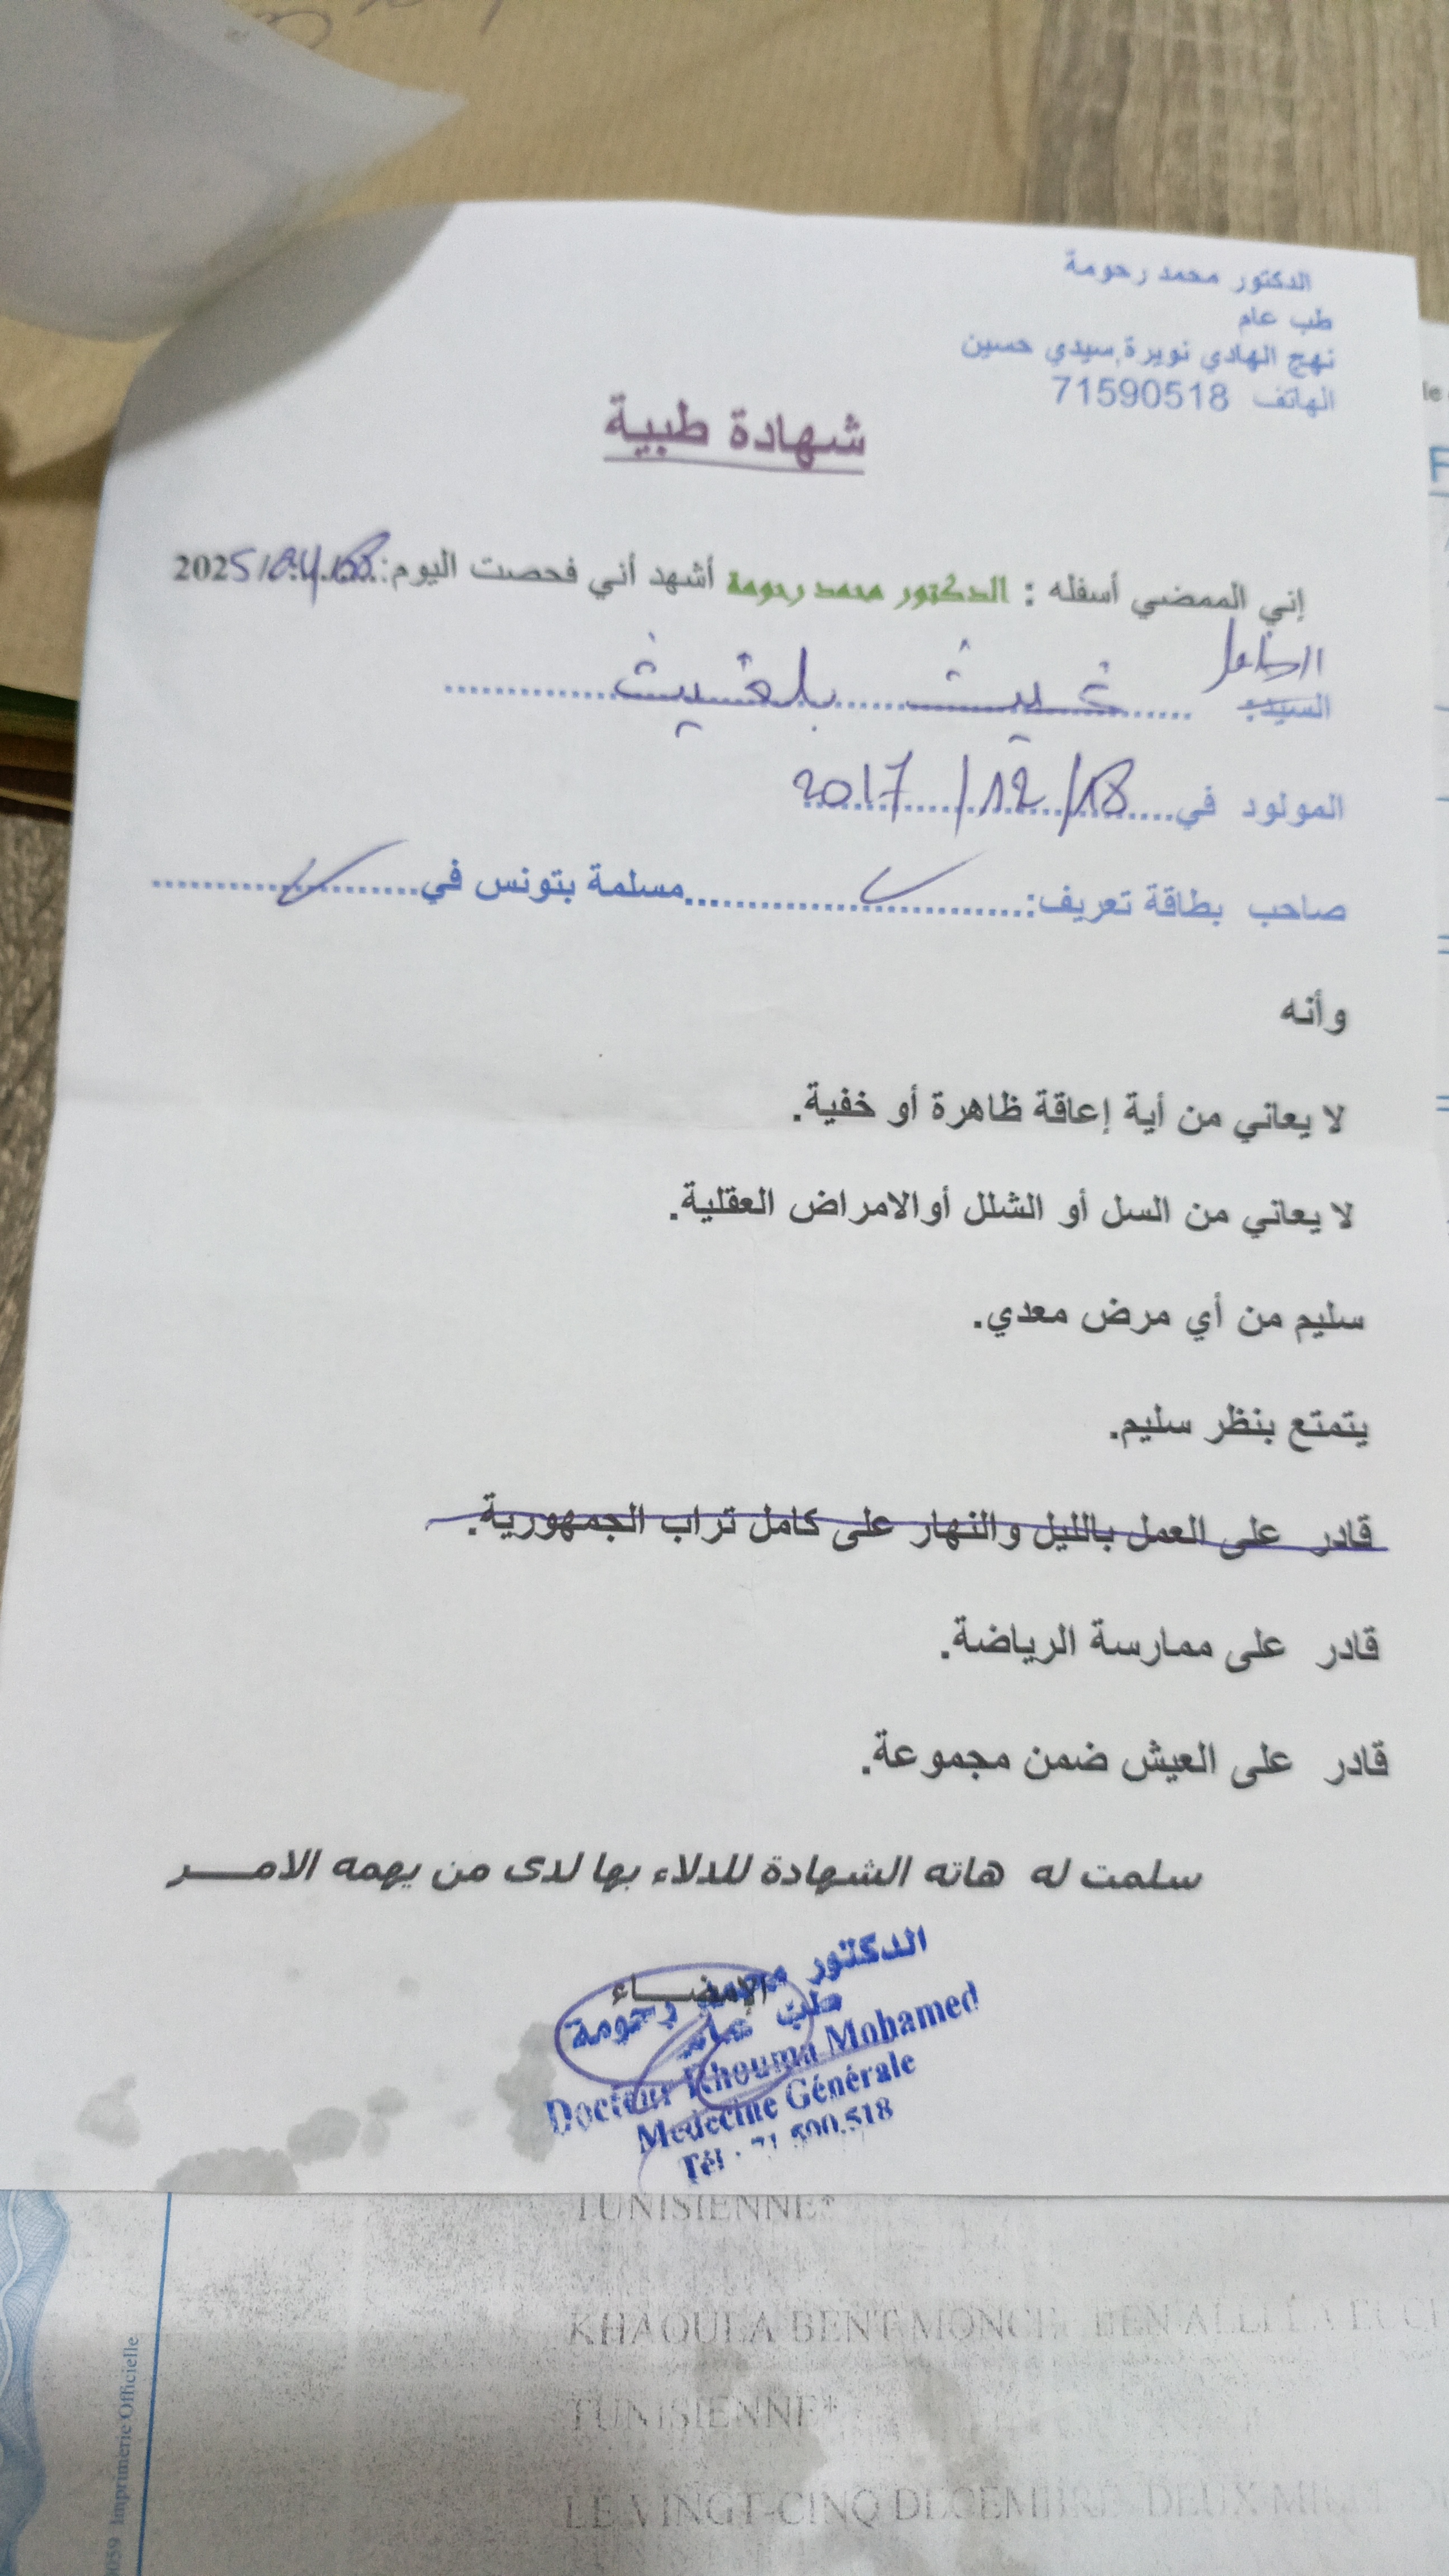 الدكتور محمد رحومة
طب عام
نهج الهادي نويرة,سيدي حسين
الهاتف 71590518
شهادة طبية
إني الممضي أسفله : الدكتور محمد رحومة أشهد أني فحصت اليوم: 2025/04/08
الطفل
السيد: غيث بلغيث
المولود في 18/12/2017
صاحب بطاقة تعريف: مسلمة بتونس في
وأنه
لا يعاني من أية إعاقة ظاهرة أو خفية.
لا يعاني من السل أو الشلل أوالامراض العقلية.
سليم من أي مرض معدي.
يتمتع بنظر سليم.
قادر على العمل بالليل والنهار على كامل تراب الجمهورية.
قادر على ممارسة الرياضة.
قادر على العيش ضمن مجموعة.
سلمت له هاته الشهادة للدلاء بها لدى من يهمه الامـــر
الإمضـــاء
الدكتور محمد رحومة
طب عام
Docteur Rhouma Mohamed
Medecine Générale
Tél : 71.590.518
TUNISIENNE*
KHAOULA BENT MONCEF BEN ALI
TUNISIENNE*
LE VINGT-CINQ DECEMBRE DEUX MILLE
Imprimerie Officielle